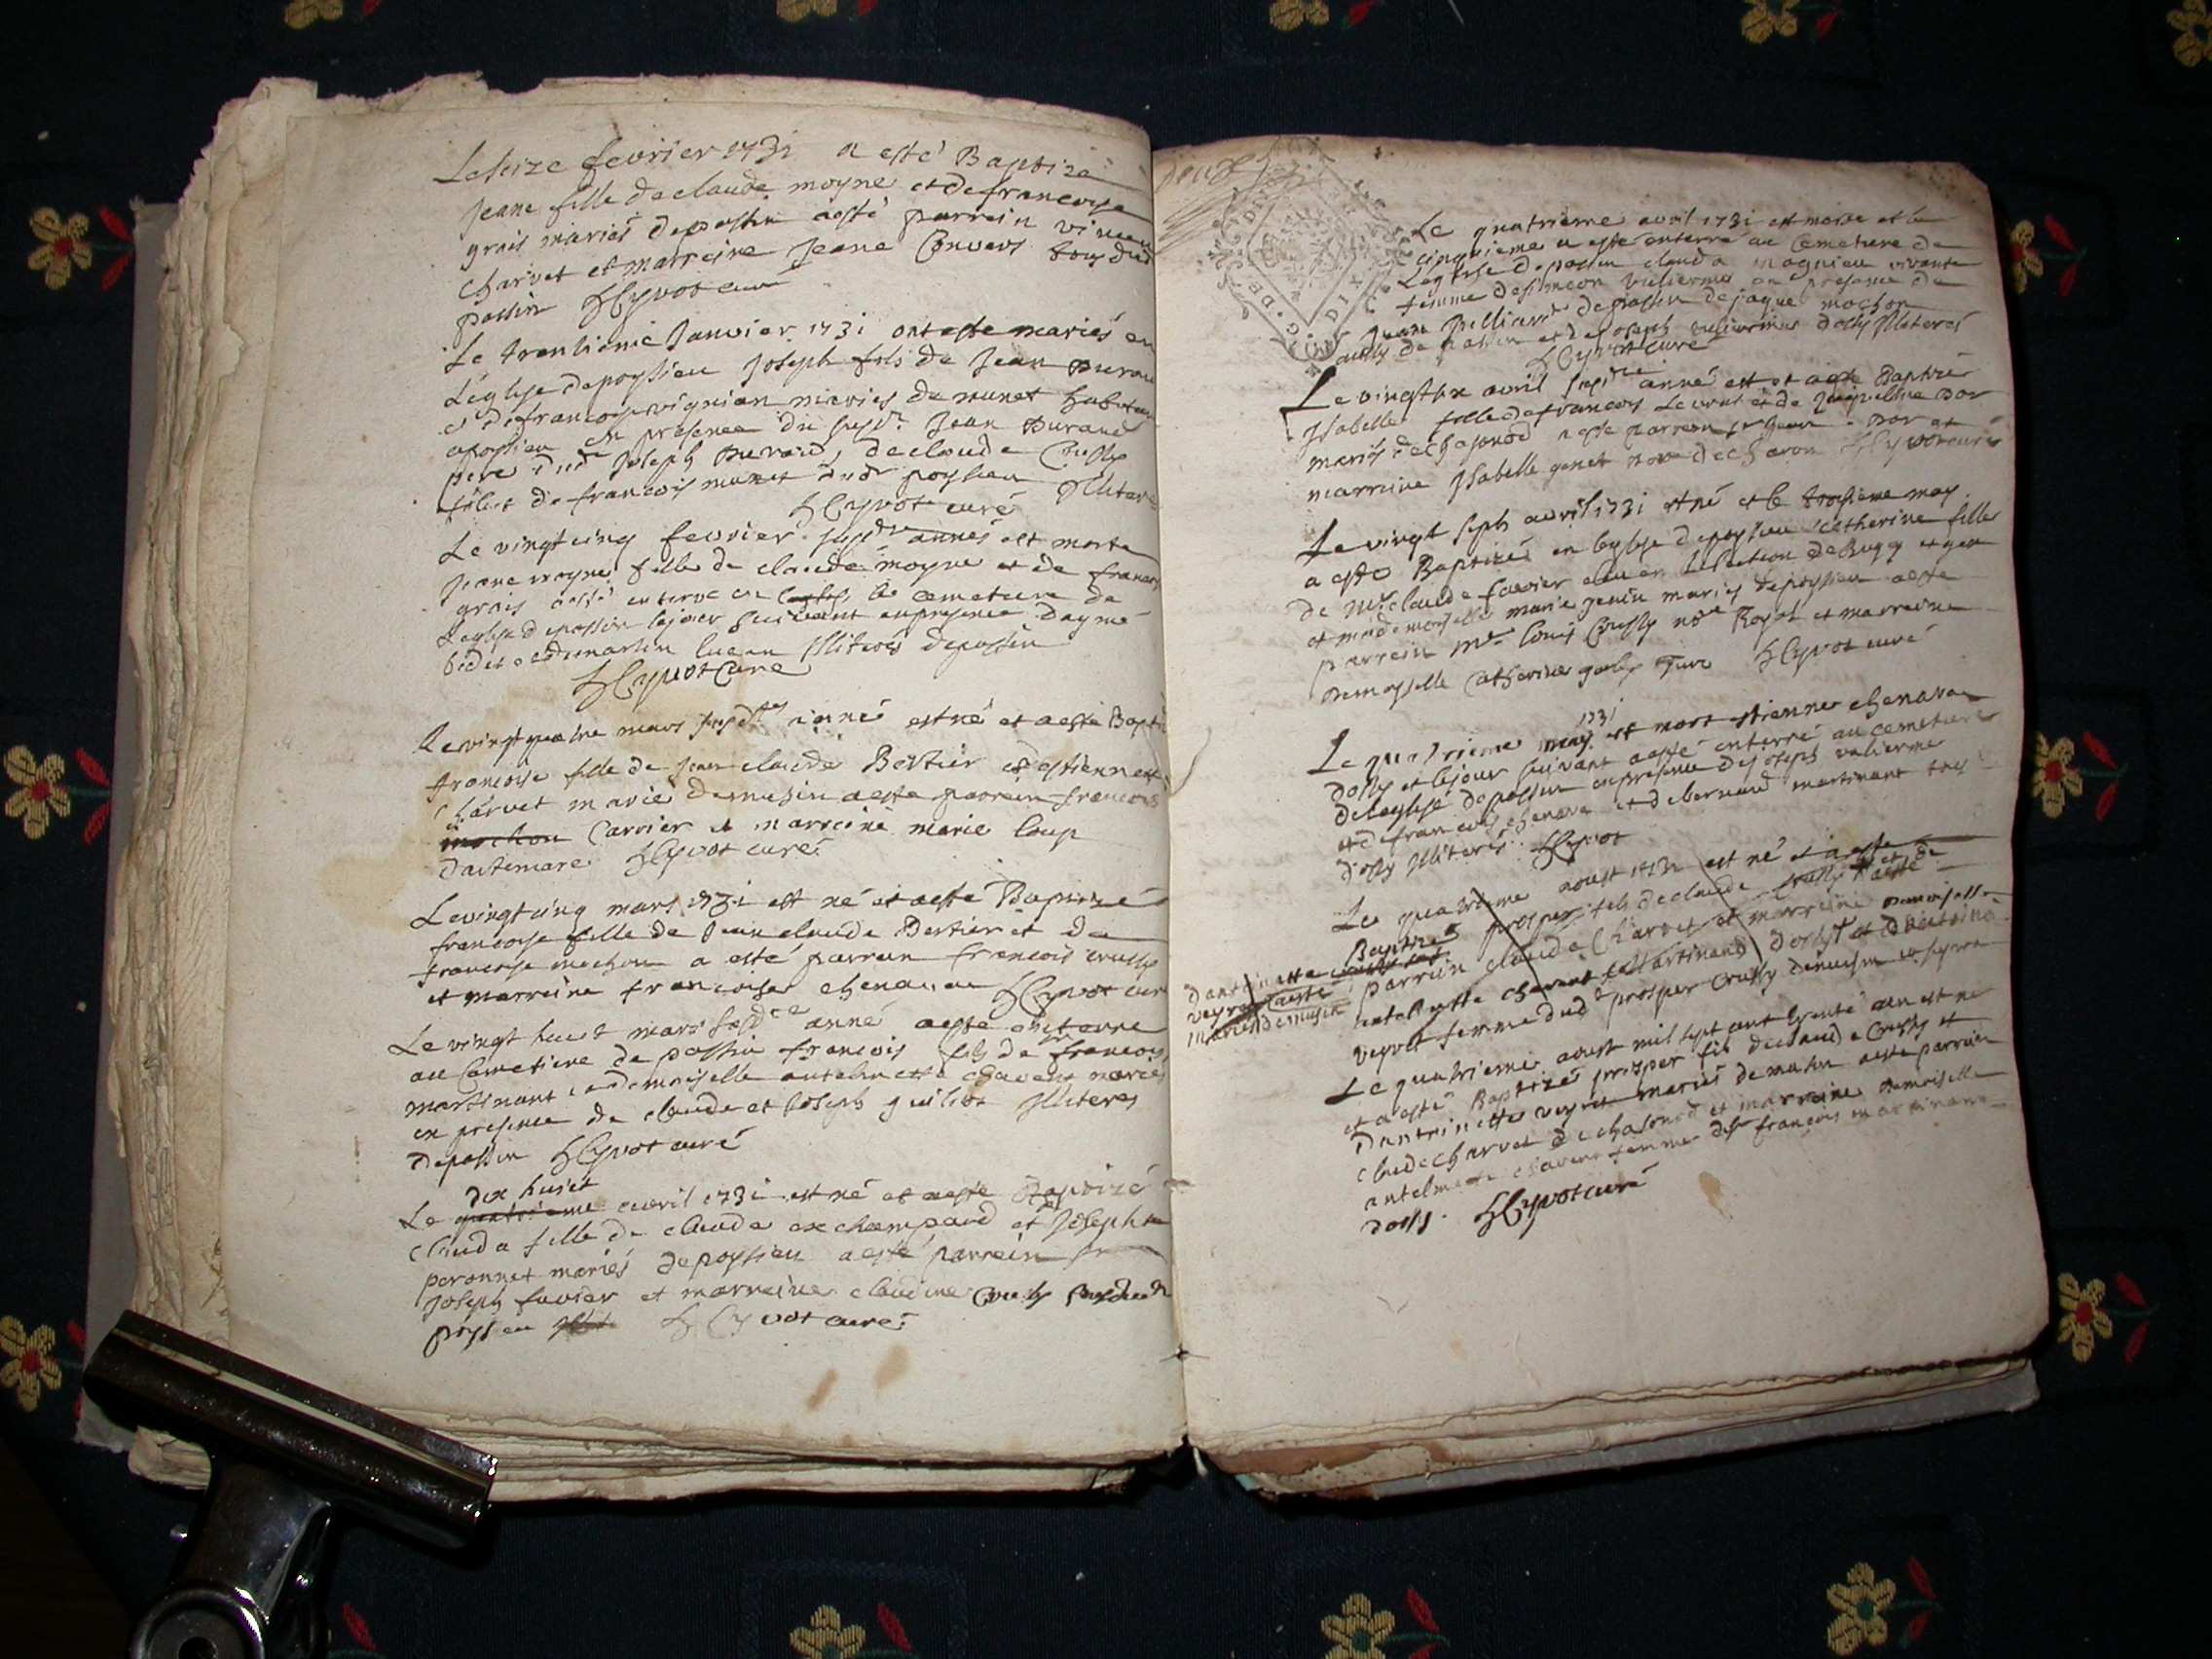 Le seize fevrier 1731 a esté Baptize
Jeane fille de claude moyne et de francoise
grais mariés de passin a esté parrein vincen
charvet et marreine Jeane Convers tous dud
passin HCyvot curé
Le trentieme Janvier 1731 ont esté mariés en
L'eglyse de poyssieu Joseph fils de Jean Duran
et de francoyse vignian mariés de munet habitan
a poyssieu en presence du susdt Jean Durand
pere dud Joseph Durand, de claude Crussy
de francois munet dudt poyssieu Illiteré
HCyvot curé
Le vingt cinq fevrier susdite année est morte
Jeane moyne fille de claude moyne et de francois
grais a esté enterré en le cemetiere de
L'eglyse de passin le jour suivant en presence daymé
bidet et de martin lucan Illiterés de passin
HCyvot Curé
Le vingt quatre mars susdite année est né et a esté Bapti
francoise fille de Jean claude Bertier et destiennette
Charvet mariés de musin a esté parrein francois
mochon Carrier et marreine marie loup
dartemare HCyvot curé
Le vingt cinq mars 1731 est né et a esté Baptizé
francoyse fille de Jean claude Bertier et de
francoyse mochon a esté parrein francois crussy
et marreine francoise chenavan HCyvot curé
Le vingt huict mars susdite année a esté enterré
au Cemetiere de passin francois fils de sr francois
martinant et de demoiselle antelmette chavent mariés
en presence de claude et Joseph guillot Illiterés
de passin HCyvot curé
dix huict
Le quatrieme avril 1731 est né et a esté Baptizé
Clauda fille de claude exchampaud et Josephte
peronnet mariés de poyssieu a esté parrein sr
Joseph favier et marreine claudine Crussy sous dud
poyssieu HCyvot curé
Le quatrieme avril 1731 est morte et le
cinquieme a esté enterré au Cemetiere de
L'eglyse de passin clauda magnieu vivante
femme de simeon vulierme en presence de
Jean pilliard de passin de jaque mochon
aussy de passin et de Joseph vulierme dossy Illiterés
HCyvot curé
Le vingt six avril susdite année est né et a esté Baptizé
Isabelle fille de francois Levrat et de Jaqueline Dor
mariés de chasnod a esté parrein sr Jean Dor et
marreine Isabelle genet nore de charon HCyvot curé
Le vingt sept avril 1731 est né et le troisieme may
a esté Baptizée en l'eglyse de poyssieu catherine fille
de Mr claude favier elu en l'election de Bugey et gex
et mademoyselle marie Jenin mariés de poyssieu a esté
parrein mre louis Crussy nore Royal et marreine
Demoyselle Catherine HCyvot curé
1731
Le quatrieme may est mort estienne chenavan
dossy et le jour suivant a esté enterré au cemetiere
de l'eglyse de passin en presence de joseph vulierme
et de francois chenavan et de bernard martinant tous
dossy Illiterés HCyvot
Le quatrieme aoust 1731 est né et a esté
Baptizé prosper fils de claude Crussy et de
dantoinette crussy
veyret a esté
mariés de musin
parrein claude Charvet et marreine Demoiselle
antelmette chavent Martinand dossy et dantoine
veyret femme dud prosper Crussy de musin
Le quatrieme aoust mil sept cent trente un est né
et a esté Baptizé prosper fils de claude Crussy et
Dantoinette veyret mariés de musin a esté parrein
claude charvet de chasnod et marreine Demoiselle
antelmette chavent femme de sr francois martinant
dossy. HCyvot curé